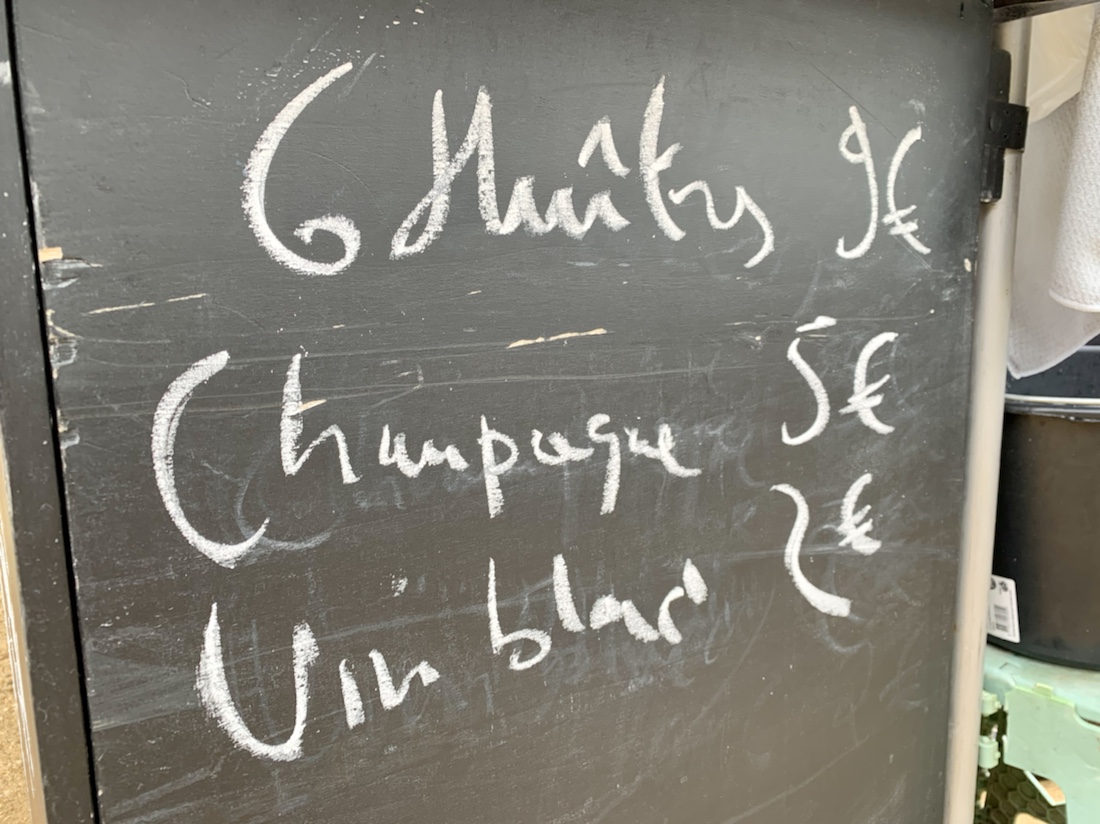 6 Huîtres 9€
Champagne 5€
Vin blanc 2€